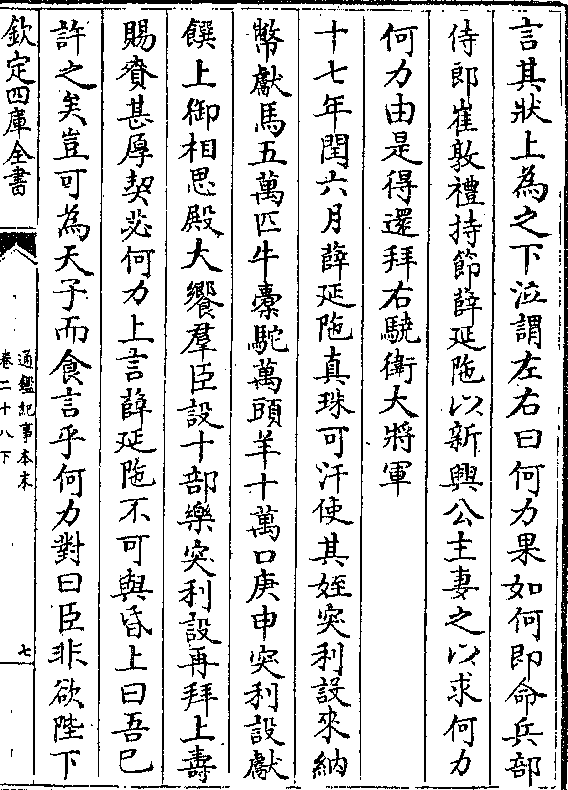 言其狀上為之下泣謂左右曰何力果如何即命兵部
侍郎崔敦禮持節薛延陁以新興公主妻之以求何力
何力由是得還拜右驍衛大將軍
十七年閏六月薛延陁真珠可汗使其姪突利設來納
幣獻馬五萬匹牛橐駝萬頭羊十萬口庚申突利設獻
饌上御相思殿大饗羣臣設十部樂突利設再拜上壽
賜賚甚厚契苾何力上言薛延陁不可與昏上曰吾已
許之矣豈可為天子而食言乎何力對曰臣非欲陛下
欽定四庫全書
通鑑紀事本末
卷二十八下
七